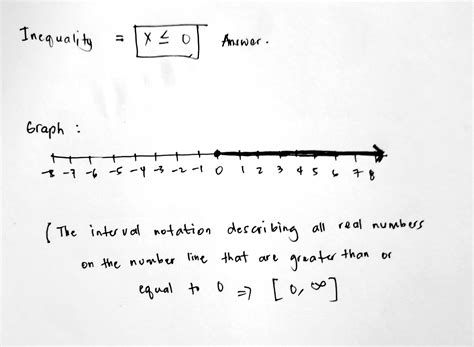 Inequality = x ≤ 0 Answer.
Graph :
-8 -7 -6 -5 -4 -3 -2 -1 0 1 2 3 4 5 6 7 8
( The interval notation describing all real numbers
on the number line that are greater than or
equal to 0 => [0, ∞]